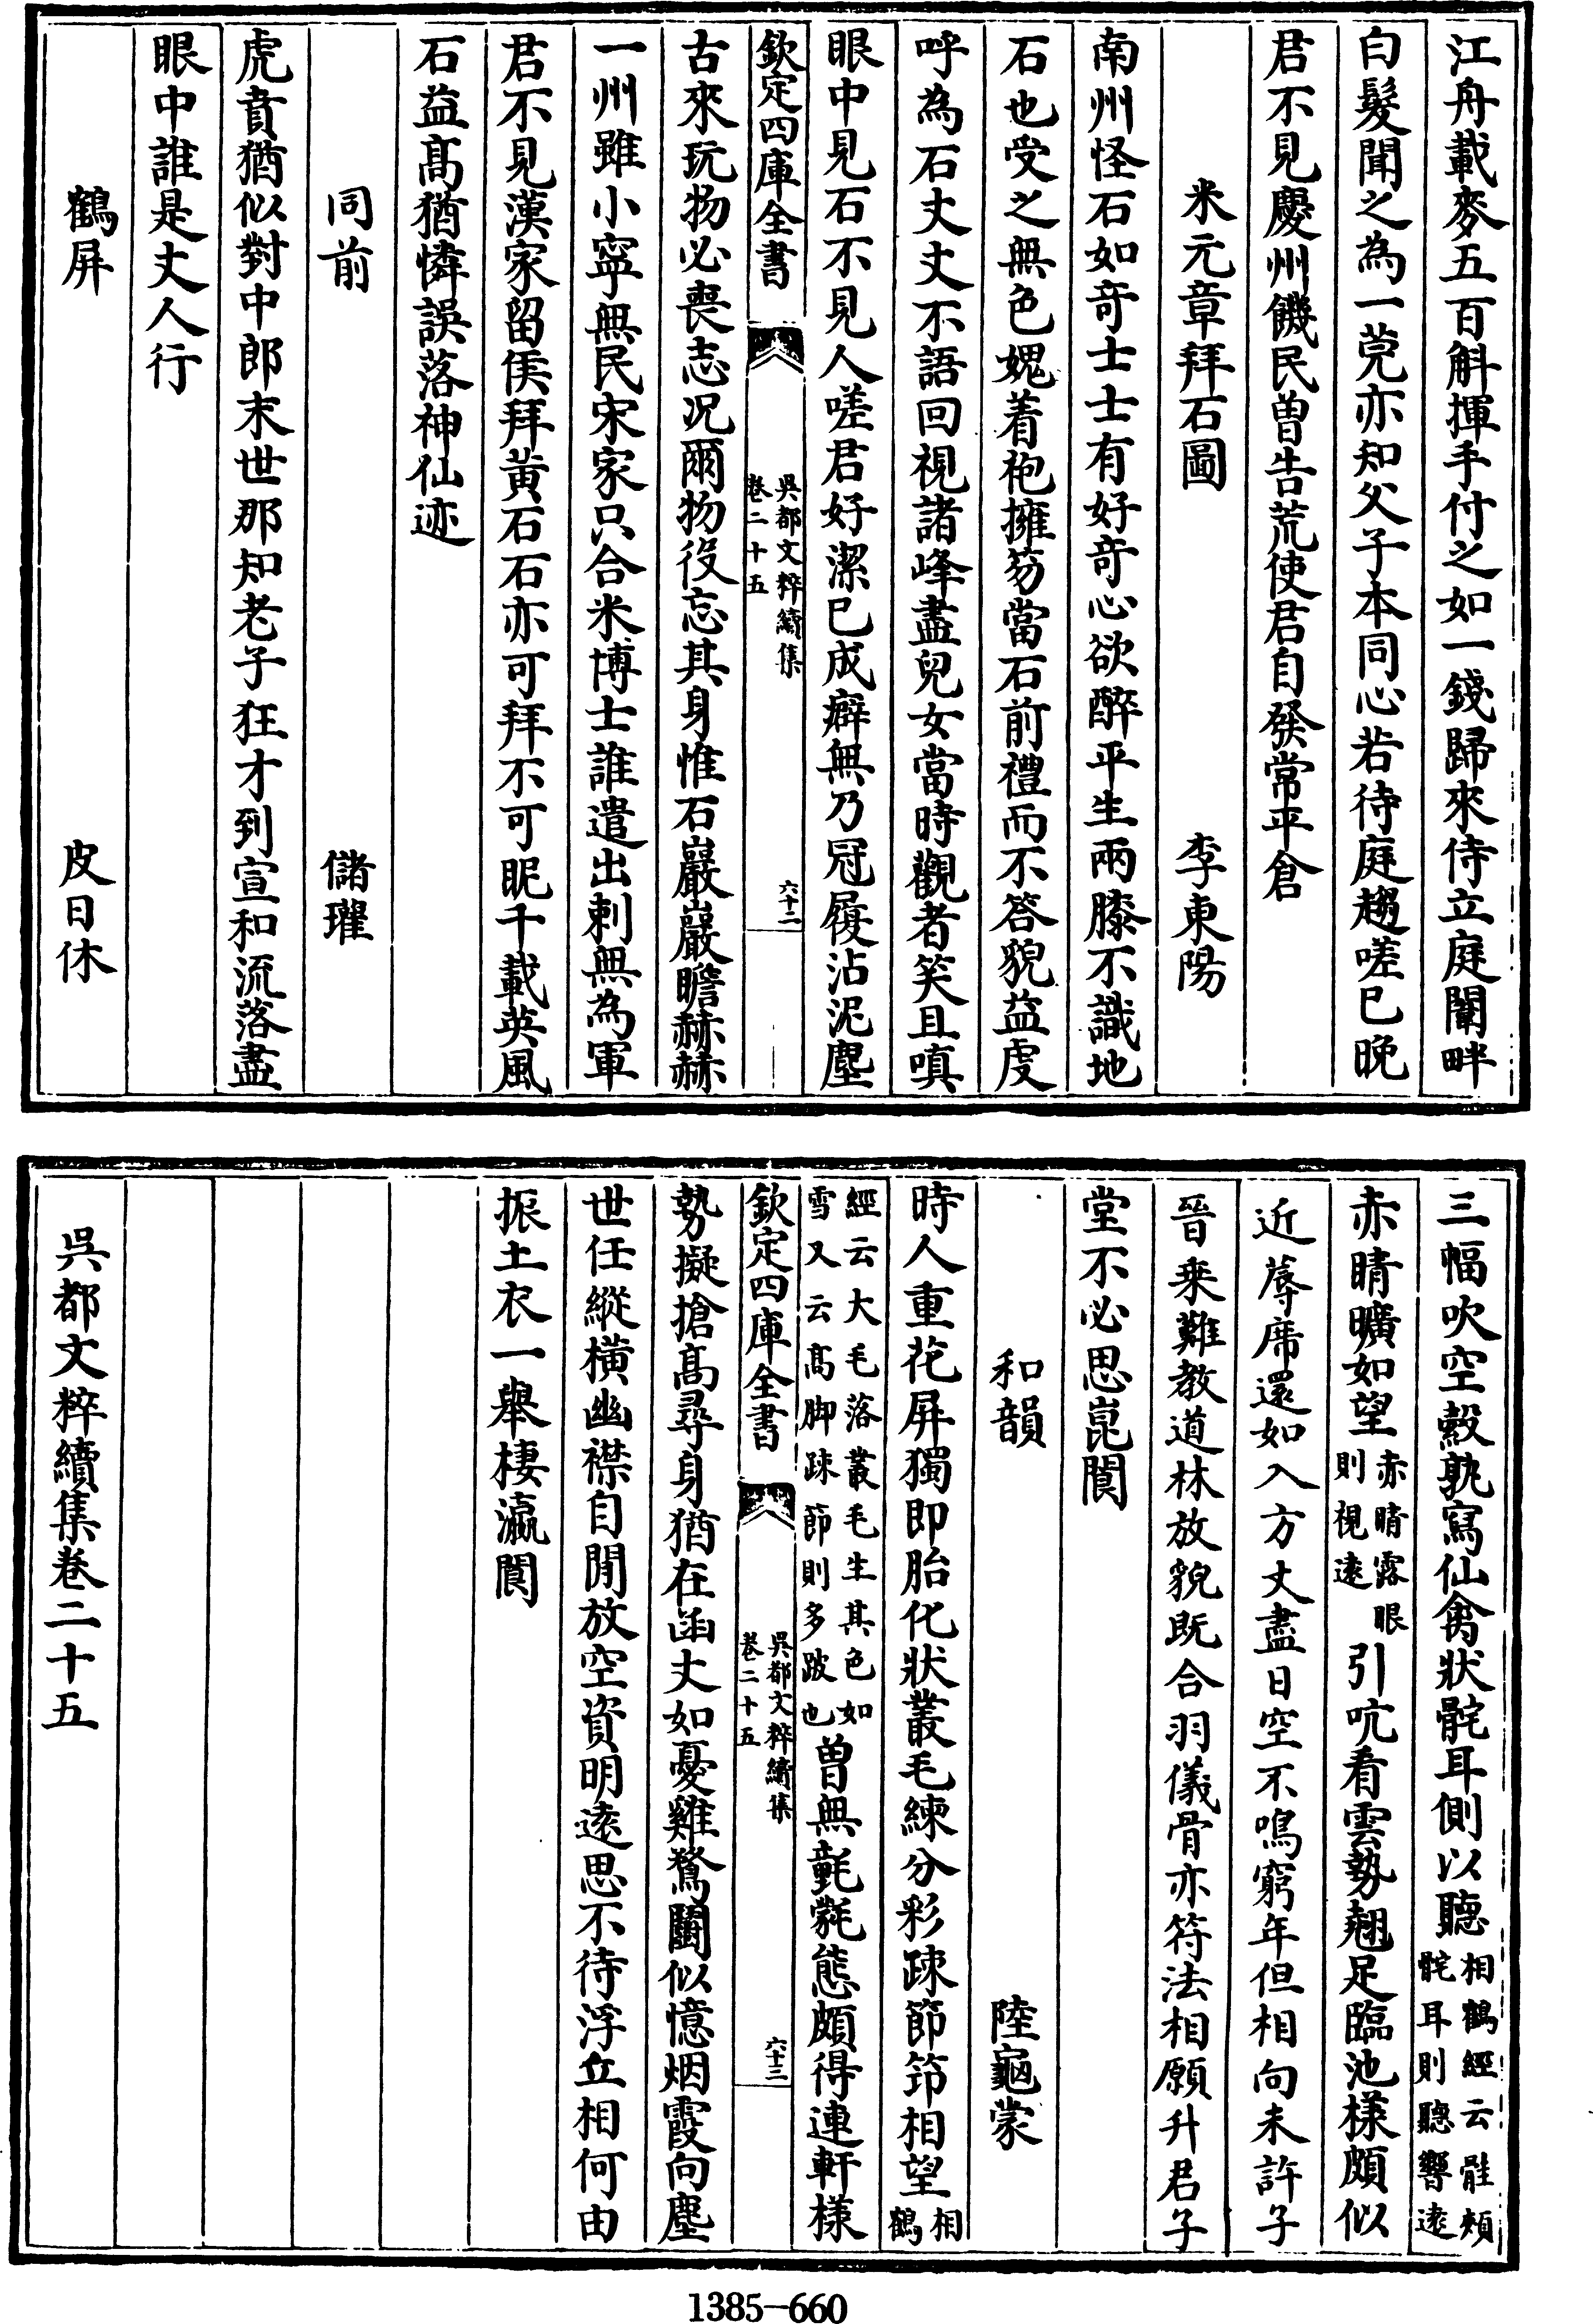 江舟載麥五百斛揮手付之如一錢歸來侍立庭闈畔
白髮聞之為一莞亦知父子本同心若待庭趨嗟已晚
君不見慶州饑民曽告荒使君自發常平倉
米元章拜石圖　李東陽
南州怪石如竒士士有好竒心欲醉平生兩膝不識地
石也受之無色媿着袍擁笏當石前禮而不答貌益虔
呼為石丈丈不語回視諸峰盡兒女當時觀者笑且嗔
眼中見石不見人嗟君好潔已成癖無乃冠履沾泥塵
欽定四庫全書　吳都文粹續集　卷二十五　六十二
古來玩物必喪志况爾物役忘其身惟石巖巖瞻赫赫
一州雖小寧無民宋家只合米博士誰遣出剌無為軍
君不見漢家留侯拜黃石石亦可拜不可昵千載英風
石益髙猶憐誤落神仙迹
同前　儲瓘
虎賁猶似對中郎末世那知老子狂才到宣和流落盡
眼中誰是丈人行
鶴屏　皮日休
三幅吹空縠孰寫仙禽狀䯱耳側以聽相鶴經云骽頰䯱耳則聽響逺
赤睛曠如望赤睛露眼則視逺引吭看雲勢翹足臨池様頗似
近蓐席還如入方丈盡日空不鳴窮年但相向未許子
晉乗難教道林放貌既合羽儀骨亦符法相願升君子
堂不必思崑閬
和韻　陸龜蒙
時人重花屏獨即胎化狀叢毛練分彩疎節筇相望相鶴
經云大毛落叢毛生其色如雪又云髙脚疎節則多跛也曽無氃氋態頗得連軒様
欽定四庫全書　吳都文粹續集　卷二十五　六十三
勢擬搶髙尋身猶在函丈如憂雞鶩鬭似憶烟霞向塵
世任縱横幽襟自閒放空資明逺思不待浮丘相何由
振土衣一舉棲瀛閬
吳都文粹續集卷二十五
1385—660